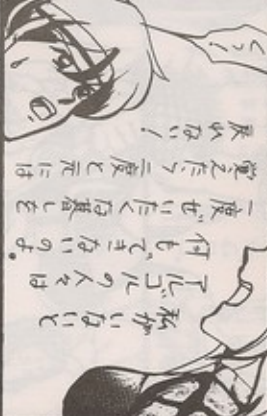 私がいないと
アルゴルの人々は
何もできないのよ。
一度ぜいたくな暮しを
覚えたら二度と元には
戻れない!
くっ!